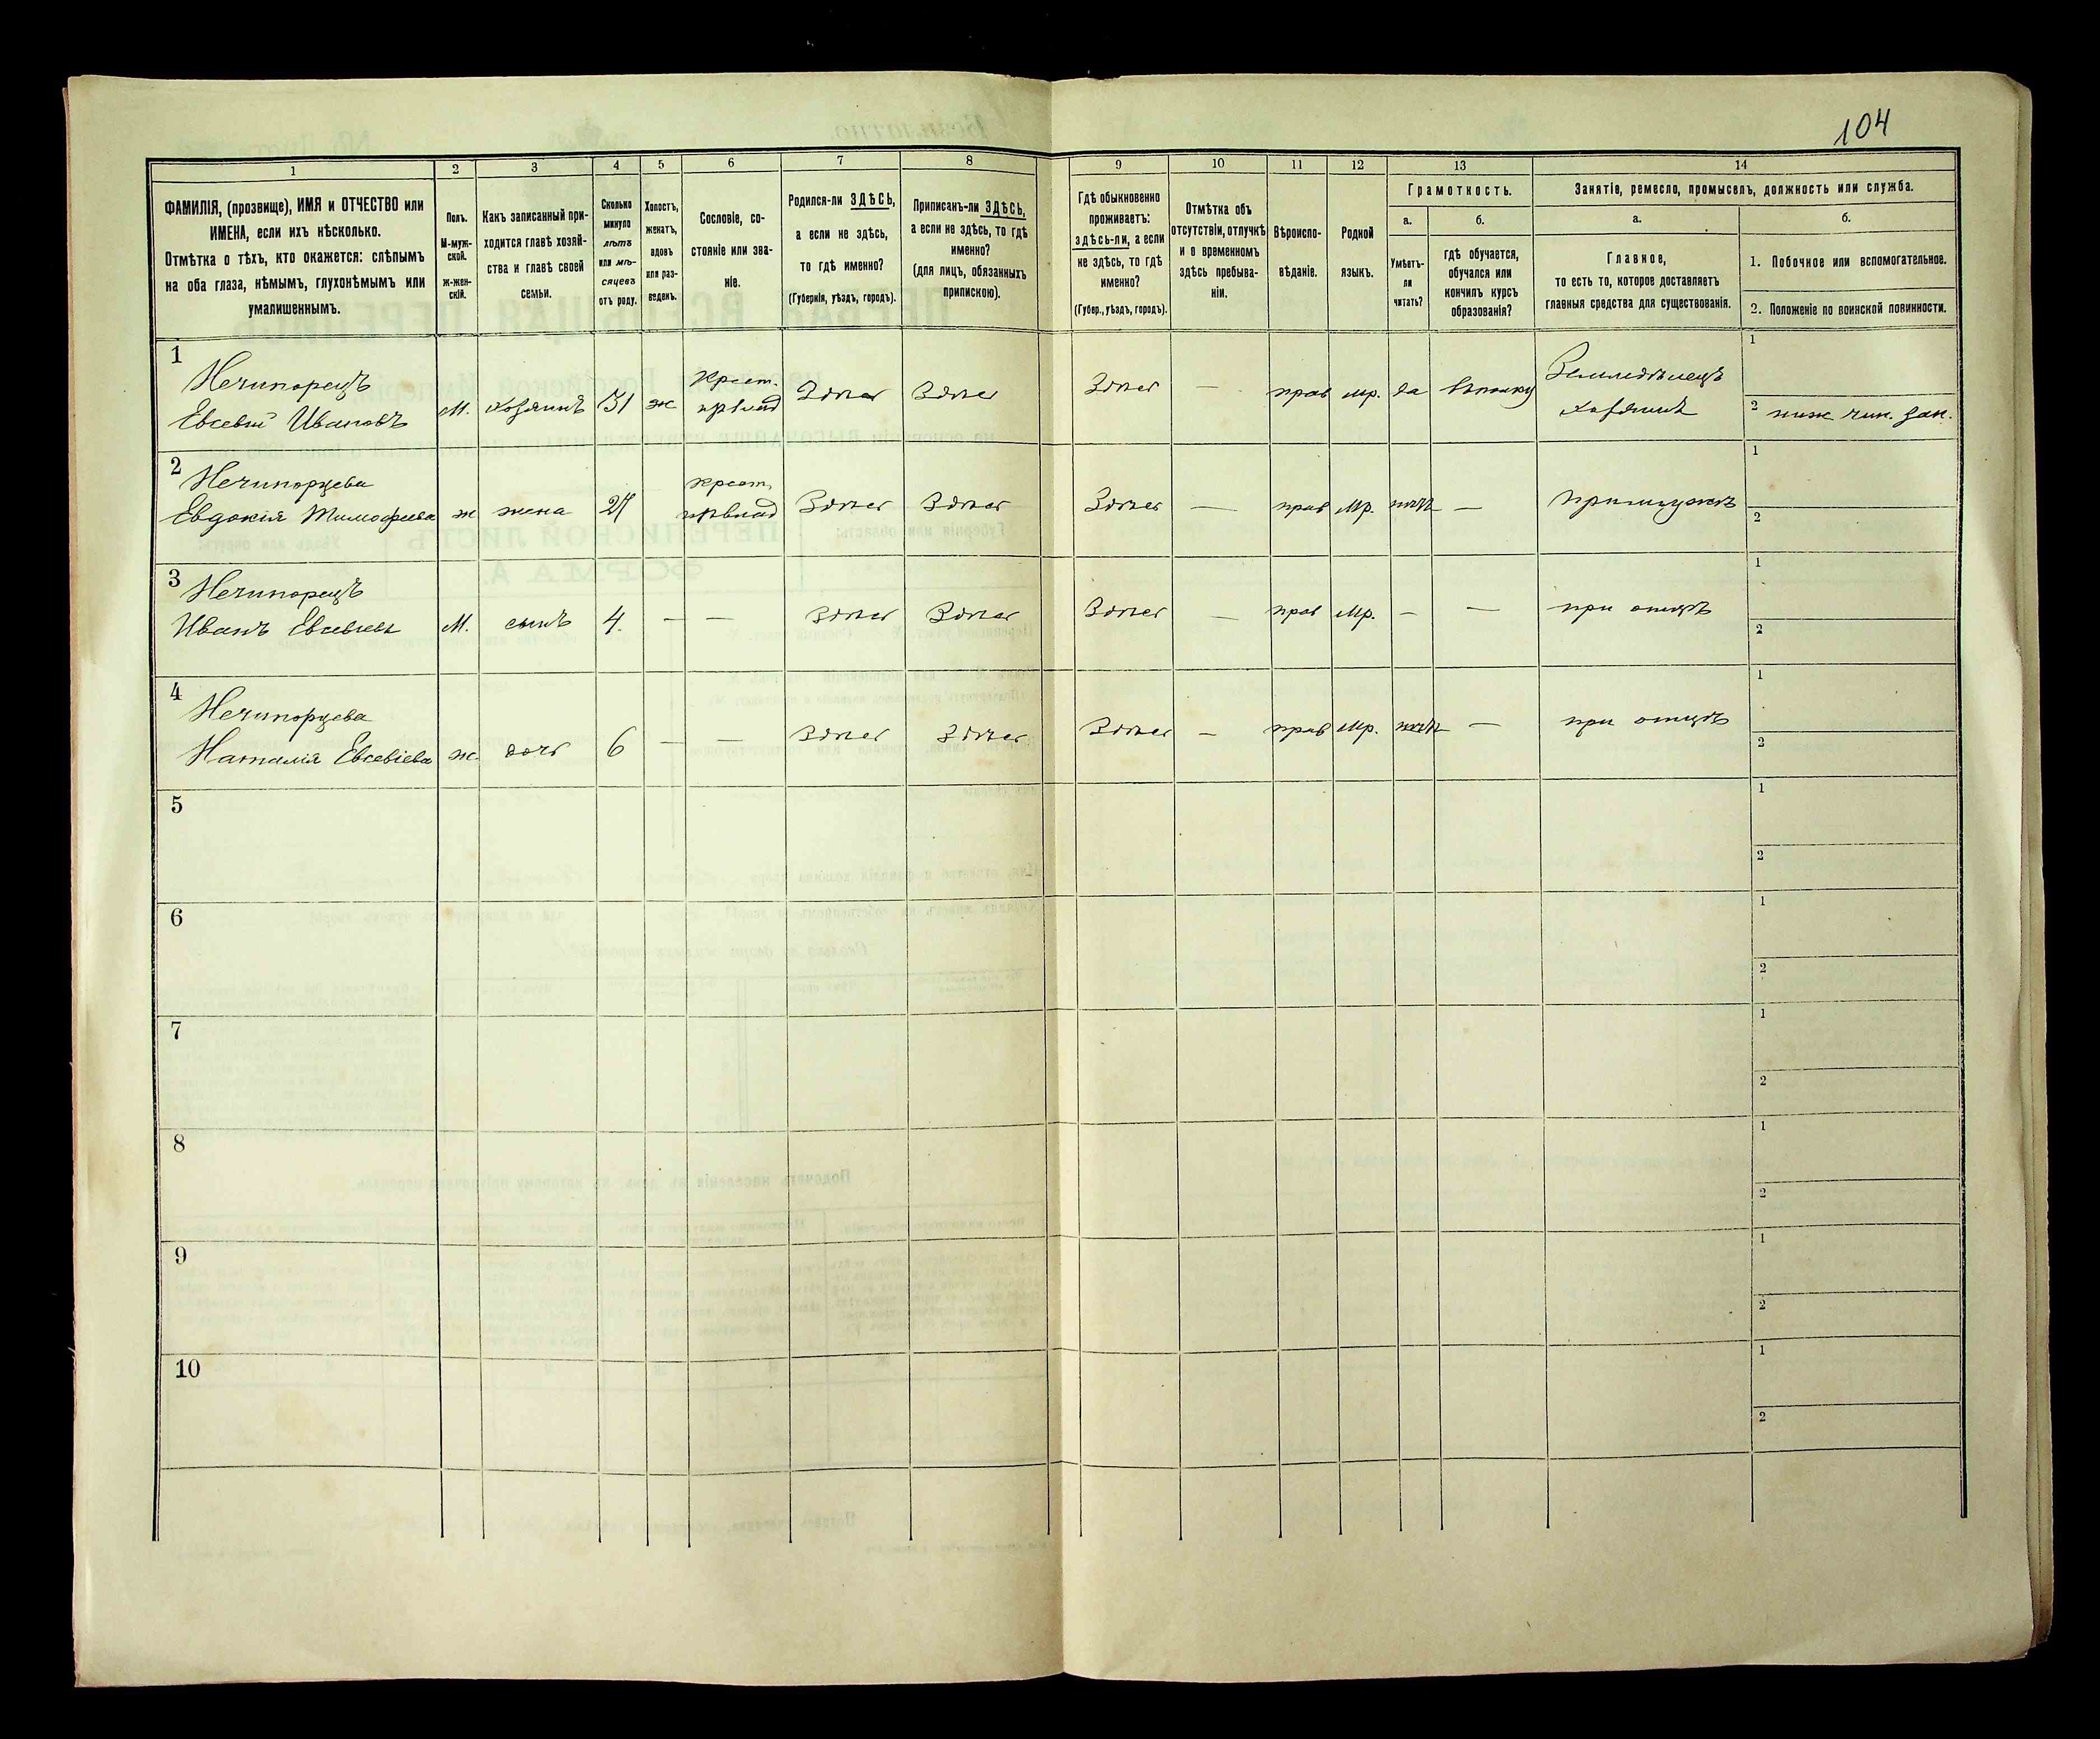 104
1 2 3 4 5 6 7 8 9 10 11 12 13 14
ФАМИЛІЯ, (прозвище), ИМЯ и ОТЧЕСТВО или
ИМЕНА, если ихъ нѣсколько.
Отмѣтка о тѣхъ, кто окажется: слѣпымъ
на оба глаза, нѣмымъ, глухонѣмымъ или
умалишеннымъ.
Полъ.
М-муж-
ской.
ж-жен-
скій.
Какъ записанный при-
ходится главѣ хозяй-
ства и главѣ своей
семьи.
Сколько
минуло
лѣтъ
или мѣ-
сяцевъ
отъ роду.
Холостъ,
женатъ,
вдовъ
или раз-
веденъ.
Сословіе, со-
стояніе или зва-
ніе.
Родился-ли ЗДѢСЬ,
а если не здѣсь,
то гдѣ именно?
(Губернія, уѣздъ, городъ).
Приписанъ-ли ЗДѢСЬ,
а если не здѣсь, то гдѣ
именно?
(для лицъ, обязанныхъ
припиской).
Гдѣ обыкновенно
проживаетъ:
здѣсь-ли, а если
не здѣсь, то гдѣ
именно?
(Губер., уѣздъ, городъ).
Отмѣтка объ
отсутствіи, отлучкѣ
и о временномъ
здѣсь пребыва-
ніи.
Вѣроиспо-
вѣданіе.
Родной
языкъ.
Грамотность.
а.
Умѣетъ-
ли
читать?
б.
гдѣ обучается,
обучался или
кончилъ курсъ
образованія?
Занятіе, ремесло, промыселъ, должность или служба.
а.
Главное,
то есть то, которое доставляетъ
главныя средства для существованія.
б.
1. Побочное или вспомогательное.
2. Положеніе по воинской повинности.
1
Нечипорецъ
Евсевій Ивановъ М. хозяинъ 31 ж Крест. Здѣсь Здѣсь Здѣсь — прав мр. да въ полку Земледѣлецъ
хозяинъ
1
2 ниж. чин. зап.
2
Нечипорцева
Евдокія Тимофеева ж жена 27 крест. Здѣсь Здѣсь Здѣсь — прав мр. нѣтъ — при мужѣ
1
2
3
Нечипорецъ
Иванъ Евсевіевъ М. сынъ 4. — — Здѣсь Здѣсь Здѣсь — прав мр. — — при отцѣ
1
2
4
Нечипорцева
Наталія Евсевіева ж. дочь 6 — — Здѣсь Здѣсь Здѣсь — прав мр. нѣтъ — при отцѣ
1
2
5
1
2
6
1
2
7
1
2
8
1
2
9
1
2
10
1
2